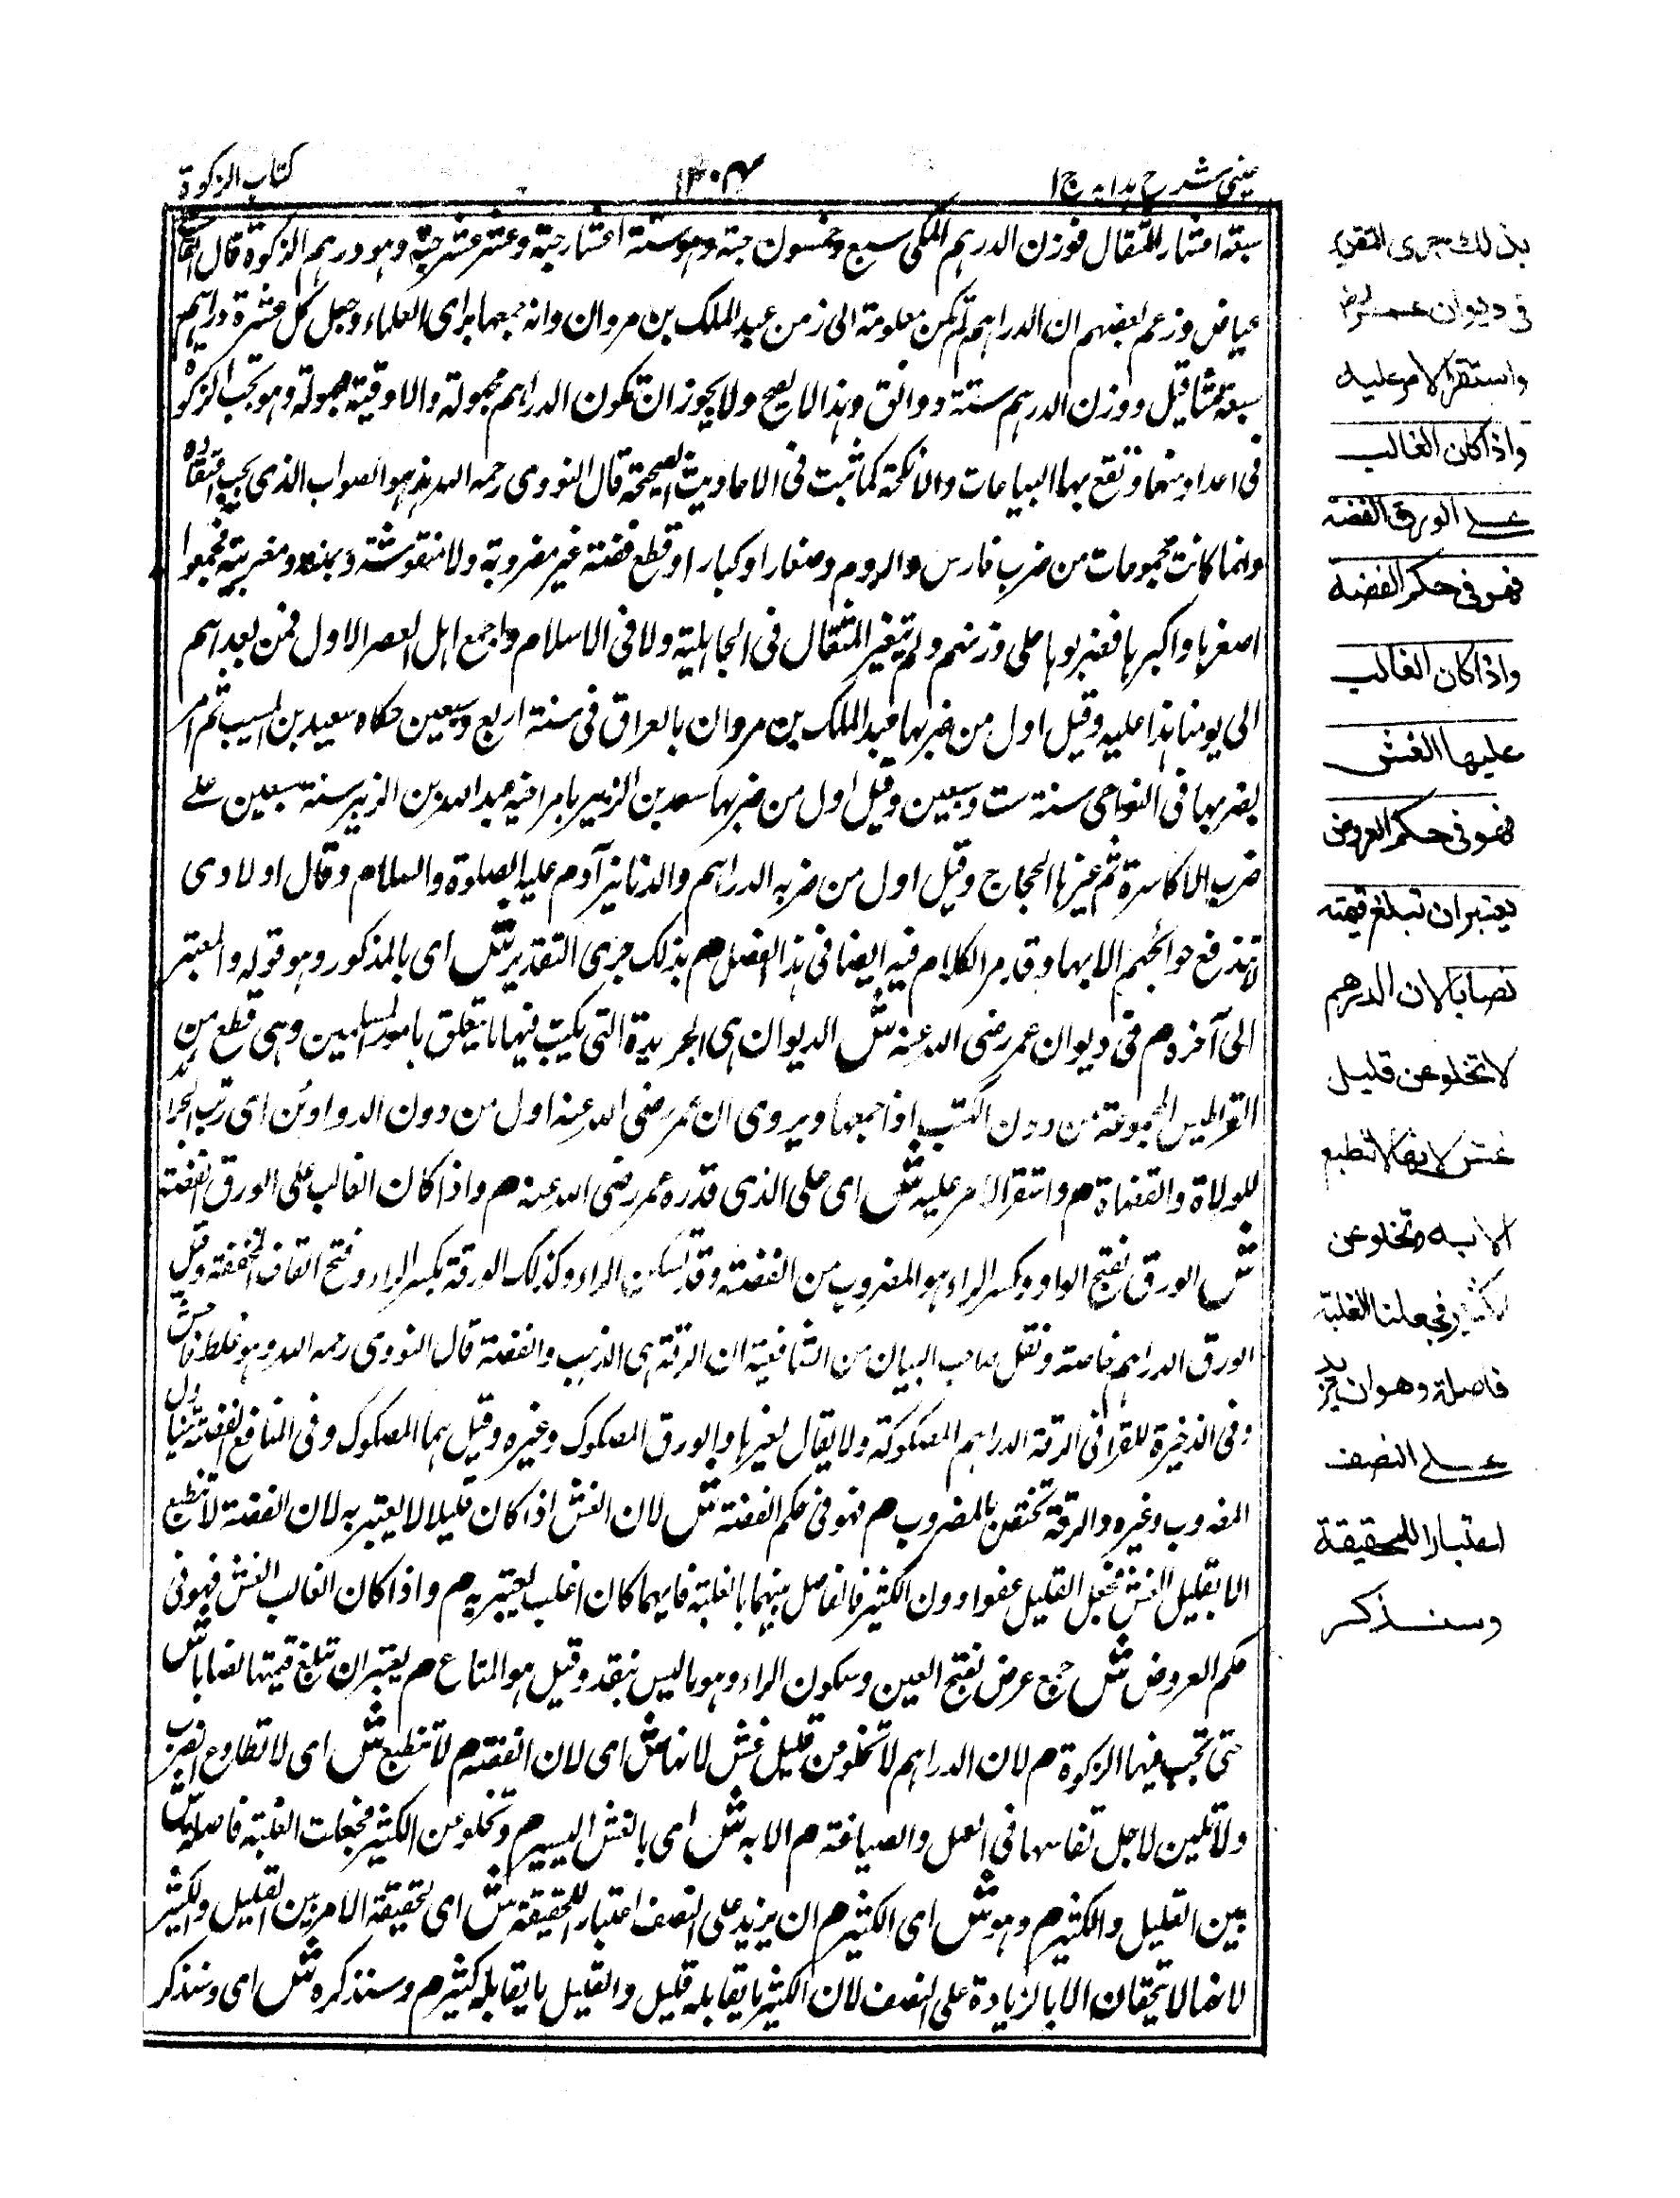 عینی شرح ہدایہ ج ا
۱۳۰۴
کتاب الزکوة
سبعة اعشار المثقال فوزن الدرہم المکی سبع وخمسون حبة وہو ستة اعشار حبة وعشر عشر حبة وہو درہم الزکوة قال القاضی
عیاض وزعم بعضہم ان الدراہم لم تکن معلومة الی زمن عبد الملک بن مروان وانہ جمعہا برای العلماء وجعل کل عشرة دراہم
سبعة مثاقیل ووزن الدرہم ستة دوانق وہذا لا یصح ولا یجوز ان تکون الدراہم مجہولة والاوقیة مجہولة وہو تجب الزکوة
فی اعداد منہا وتقع بہا البیاعات والانکحة کما ثبت فی الاحادیث الصحیحة قال النووی رحمہ اللہ ہذا ہو الصواب الذی یجب اعتقادہ
وانما کانت مجموعات من ضرب فارس والروم وصغارا وکبارا او قطع فضة غیر مضروبة ولا منقوشة و یمنیة ومغربیة فجمعوا
اصغرہا واکبرہا فضربوہا علی وزنہم ولم یتغیر المثقال فی الجاہلیة ولا فی الاسلام واجمع اہل العصر الاول فمن بعدہم
الی یومنا ہذا علیہ وقیل اول من ضربہا عبد الملک بن مروان بالعراق فی سنة اربع وسبعین حکاہ سعید بن المسیب ثم امر
بضربہا فی النواحی سنة ست وسبعین وقیل اول من ضربہا سعد بن الزبیر بامر اخیہ عبد اللہ بن الزبیر سنة سبعین علے
ضرب الاکاسرة ثم غیرہا الحجاج وقیل اول من ضرب الدراہم والدنانیر آدم علیہ الصلوة والسلام وقال اولادی
لا تندفع حوائجہم الا بہا وقد مر الکلام فیہ ایضا فی ہذا الفصل م بذلک جری التقدیر ش ای بالمذکور وہو قولہ والمعتبر
الی آخرہ م فی دیوان عمر رضی اللہ عنہ ش الدیوان ہی الجریدة التی یکتب فیہا ما یتعلق بامور المسلمین وہی قطع من
القراطیس المجموعة من دون الکتب اذا جمعہا ویروی ان عمر رضی اللہ عنہ اول من دون الدواوین ای رتب الجرائد
للولاة والقضاة م واستقر الامر علیہ ش ای علی الذی قدرہ عمر رضی اللہ عنہ م واذا کان الغالب علی الورق الفضة
ش الورق بفتح الواو وکسر الراء ہو المضروب من الفضة وقد تسکن الراء وکذلک الورقة بکسر الراء وفتح القاف المخففة وقیل
الورق الدراہم خاصة ونقل صاحب البیان من الشافعیة ان الرقة ہی الذہب والفضة قال النووی رحمہ اللہ وہو غلط فاحش
وفی الذخیرة للقرافی الرقة الدراہم المسکوکة ولا یقال لغیرہا والورق المسکوک وغیرہ وقیل ہما المسکوک وفی المنافع الفضة یتناول
المضروب وغیرہ والرقة تختص بالمضروب م فہو فی حکم الفضة ش لان الغش اذا کان قلیلا لا یعتبر بہ لان الفضة لا تنطبع
الا بقلیل الغش فجعل القلیل عفوا دون الکثیر فالفاصل بینہما بالغلبة فایہما کان اغلب یعتبر بہ م واذا کان الغالب الغش فہو فی
حکم العروض ش جمع عرض بفتح العین وسکون الراء وہو ما لیس بنقد وقیل ہو المتاع م یعتبر ان تبلغ قیمتہا نصابا ش
حتی تجب فیہا الزکوة م لان الدراہم لا تخلو من قلیل غش لانہا ش ای لان الفضة م لا تنطبع ش ای لا تطاوع الضرب
ولا تلین لاجل تفاسہا فی العمل والصیاغة م الا بہ ش ای بالغش الیسیر م وتخلو عن الکثیر فجعلت الغلبة فاصلة ش
بین القلیل والکثیر م وہو ش ای الکثیر م ان یزید علی النصف اعتبارا للحقیقة ش ای لحقیقة الامر بین القلیل والکثیر
لانہما لا یتحققان الا بالزیادة علی النصف لان الکثیر ما یقابلہ قلیل والقلیل ما یقابلہ کثیر م وسنذکرہ ش ای وسنذکر
بذلك جرى التقدير
فى ديوان عمر رض
واستقر الامر عليه
واذا كان الغالب
على الورق الفضة
فهو فى حكم الفضة
واذا كان الغالب
عليها الغش
فهو فى حكم العروض
يعتبر ان تبلغ قيمته
نصابا لان الدرهم
لا تخلو عن قليل
غش لانها لا تنطبع
الا به وتخلو عن
الكثير فجعلنا الغلبة
فاصلة وهو ان يزيد
على النصف
اعتبارا للحقيقة
وسنذكر